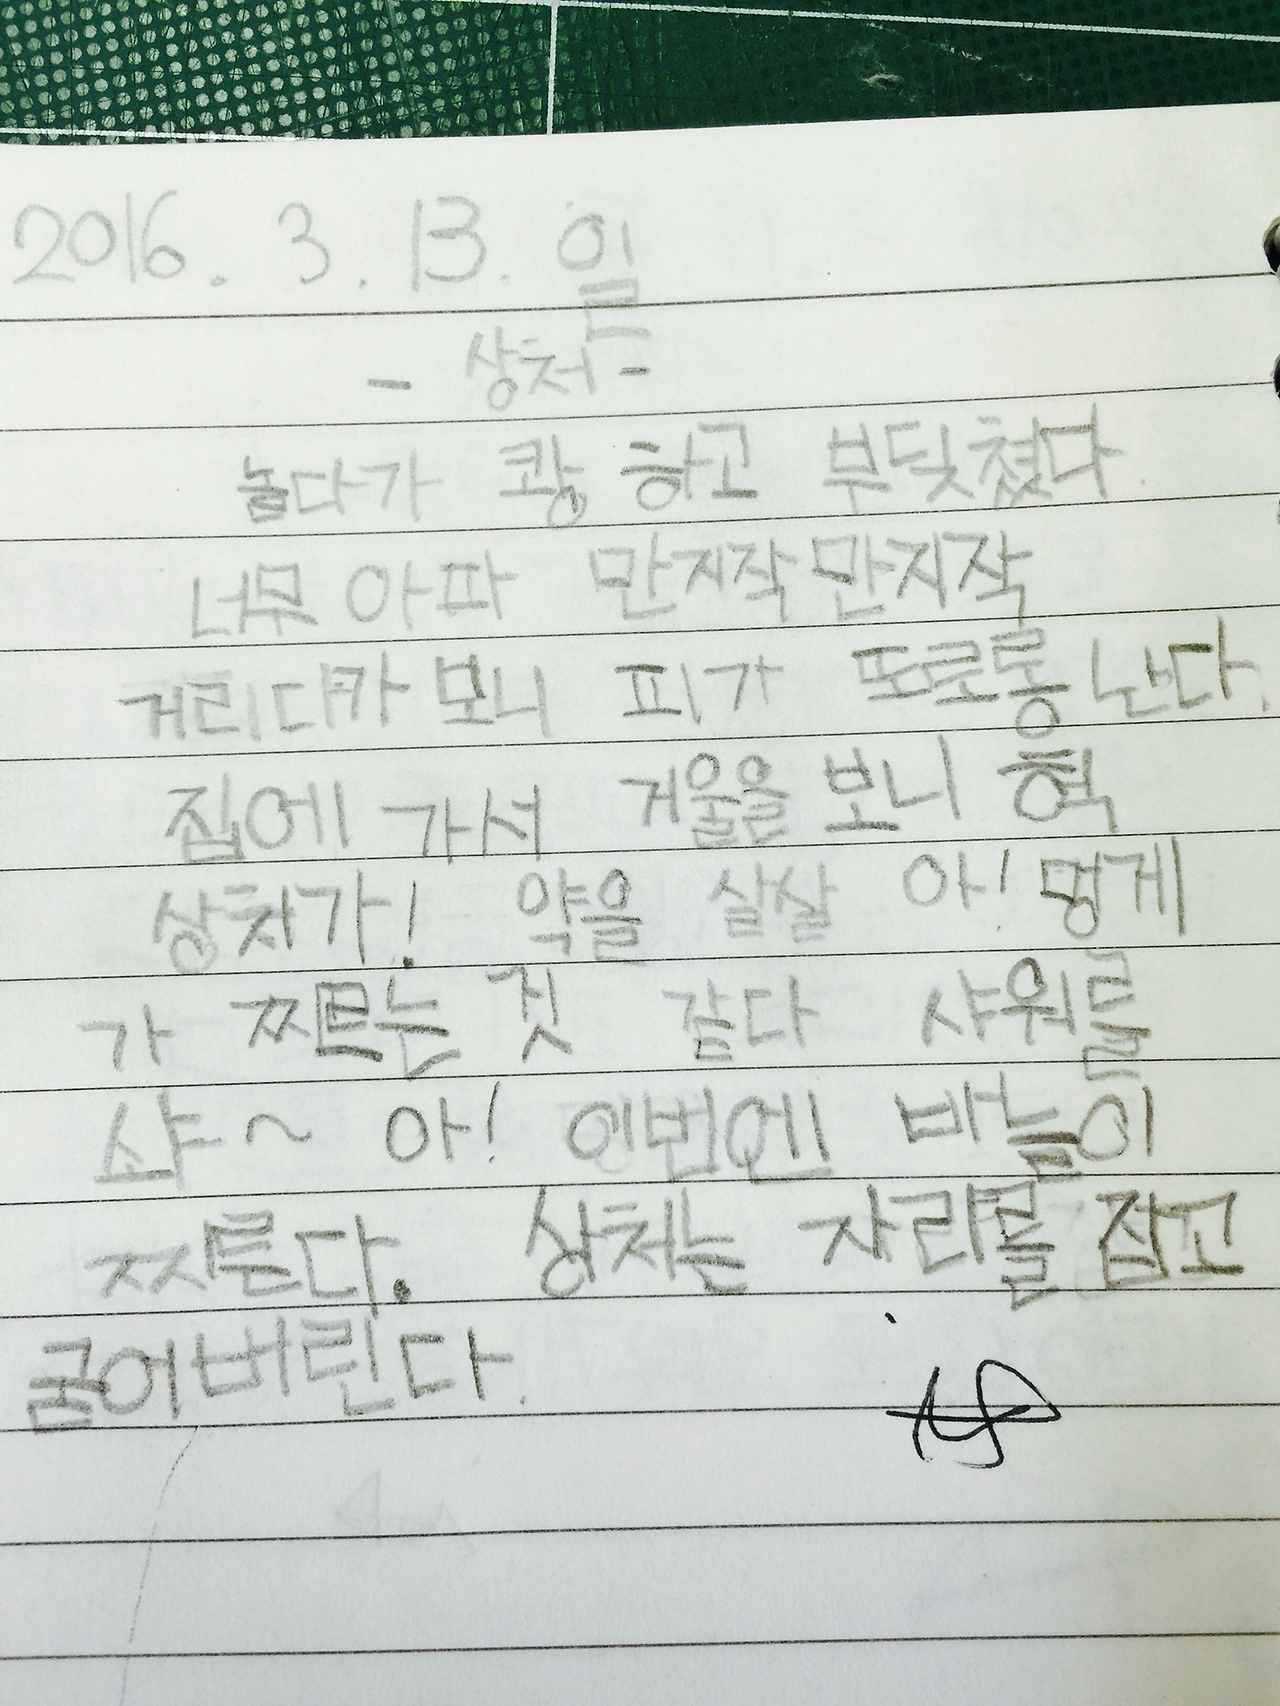 2016. 3. 13. 일
- 상처 -
놀다가 쾅 하고 부딪쳤다.
너무 아파 만지작 만지작
거리다가 보니 피가 또로롱 난다.
집에 가서 거울을 보니 헉
상처가! 약을 살살 아! 멍게
가 찌르는 것 같다 샤워를
쏴~ 아! 이번엔 바늘이
찌룬다. 상처는 자리를 잡고
굳어버린다.